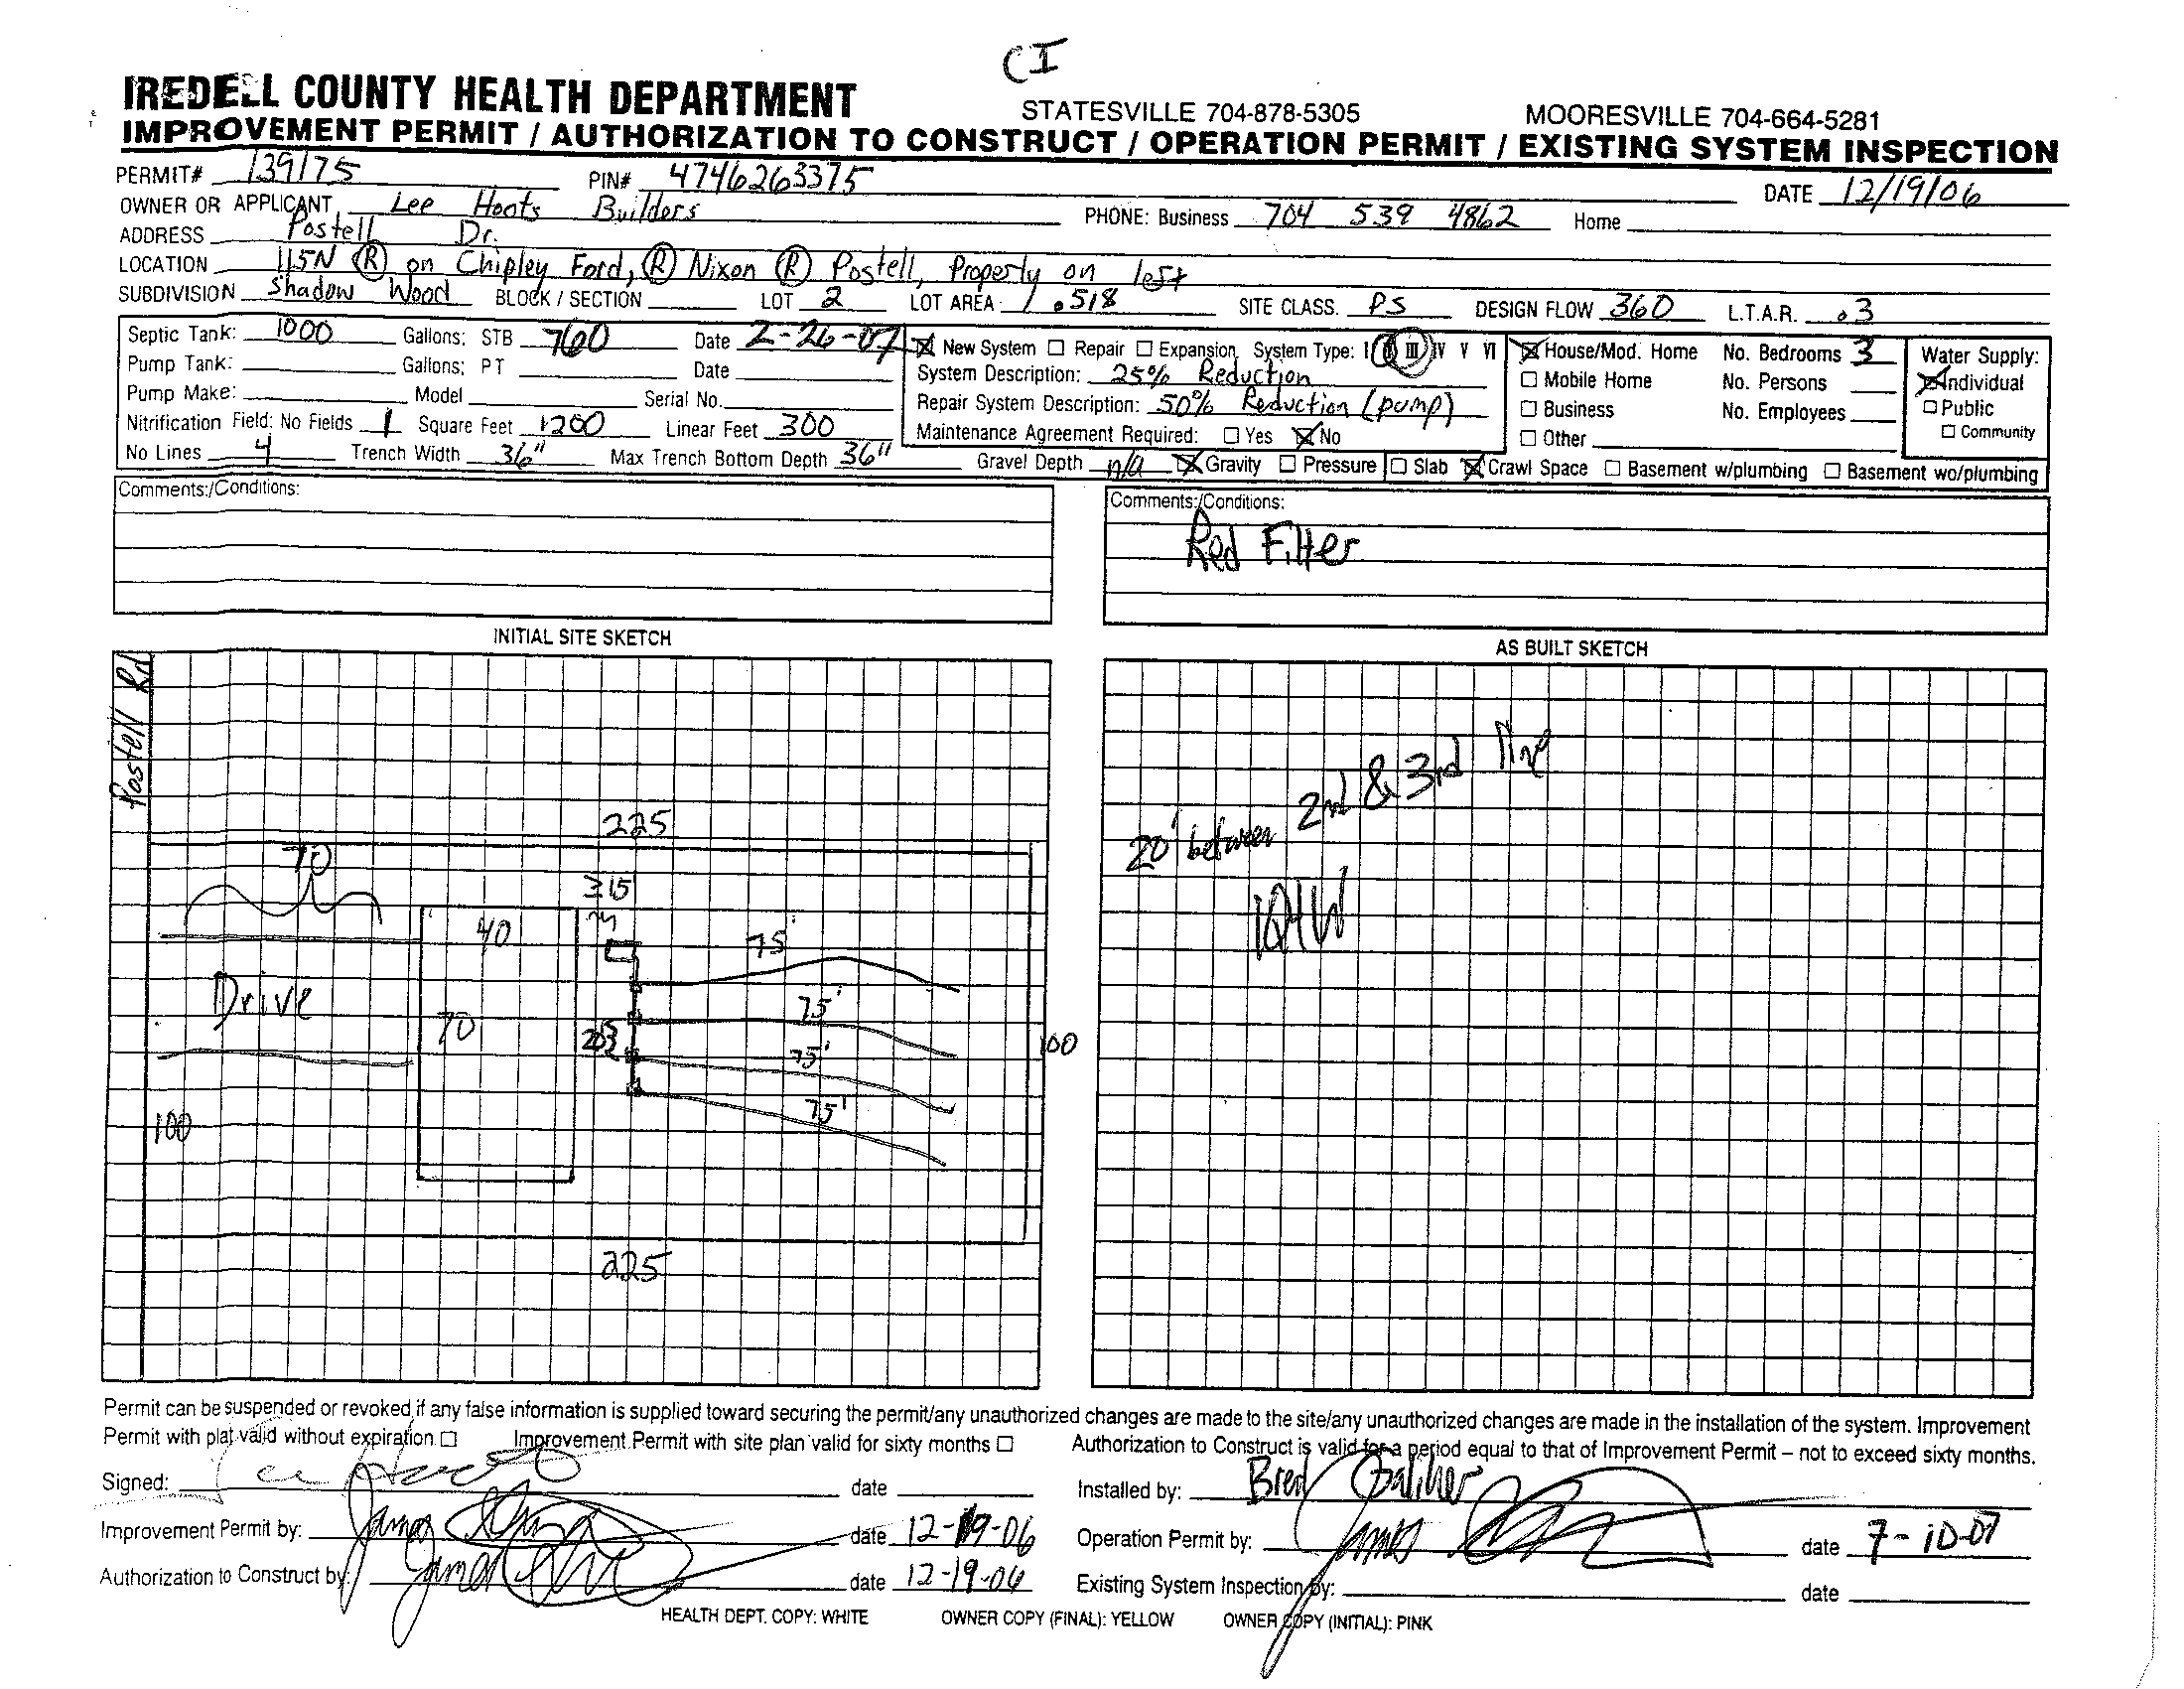 CI
IREDELL COUNTY HEALTH DEPARTMENT STATESVILLE 704-878-5305 MOORESVILLE 704-664-5281
IMPROVEMENT PERMIT / AUTHORIZATION TO CONSTRUCT / OPERATION PERMIT / EXISTING SYSTEM INSPECTION
PERMIT# 139175 PIN# 4746263375 DATE 12/19/06
OWNER OR APPLICANT Lee Hoots Builders PHONE: Business 704 539 4862 Home
ADDRESS Postell Dr.
LOCATION 115N R on Chipley Ford, R Nixon R Postell, Property on left
SUBDIVISION Shadow Wood BLOCK / SECTION LOT 2 LOT AREA .518 SITE CLASS. PS DESIGN FLOW 360 L.T.A.R. .3
Septic Tank: 1000 Gallons: STB 760 Date 2-26-07 New System Repair Expansion System Type: I II III IV V VI House/Mod. Home No. Bedrooms 3 Water Supply:
Pump Tank: Gallons: PT Date System Description: 25% Reduction Mobile Home No. Persons Individual
Pump Make: Model Serial No. Repair System Description: 50% Reduction (pump) Business No. Employees Public
Nitrification Field: No Fields 1 Square Feet 1200 Linear Feet 300 Maintenance Agreement Required: Yes No Other Community
No Lines 4 Trench Width 36" Max Trench Bottom Depth 36" Gravel Depth n/a Gravity Pressure Slab Crawl Space Basement w/plumbing Basement wo/plumbing
Comments:/Conditions: Comments:/Conditions:
Red Filter
INITIAL SITE SKETCH AS BUILT SKETCH
Postell Rd
225
70
315
40
75'
Drive
75'
70
20
75'
100
75'
100
225
20' between 2nd & 3rd line
IQ4W
Permit can be suspended or revoked if any false information is supplied toward securing the permit/any unauthorized changes are made to the site/any unauthorized changes are made in the installation of the system. Improvement
Permit with plat valid without expiration Improvement Permit with site plan valid for sixty months Authorization to Construct is valid for a period equal to that of Improvement Permit – not to exceed sixty months.
Signed: date Installed by: Bred Galiher
Improvement Permit by: James date 12-19-06 Operation Permit by: James date 7-10-07
Authorization to Construct by: James date 12-19-06 Existing System Inspection by: date
HEALTH DEPT. COPY: WHITE OWNER COPY (FINAL): YELLOW OWNER COPY (INITIAL): PINK